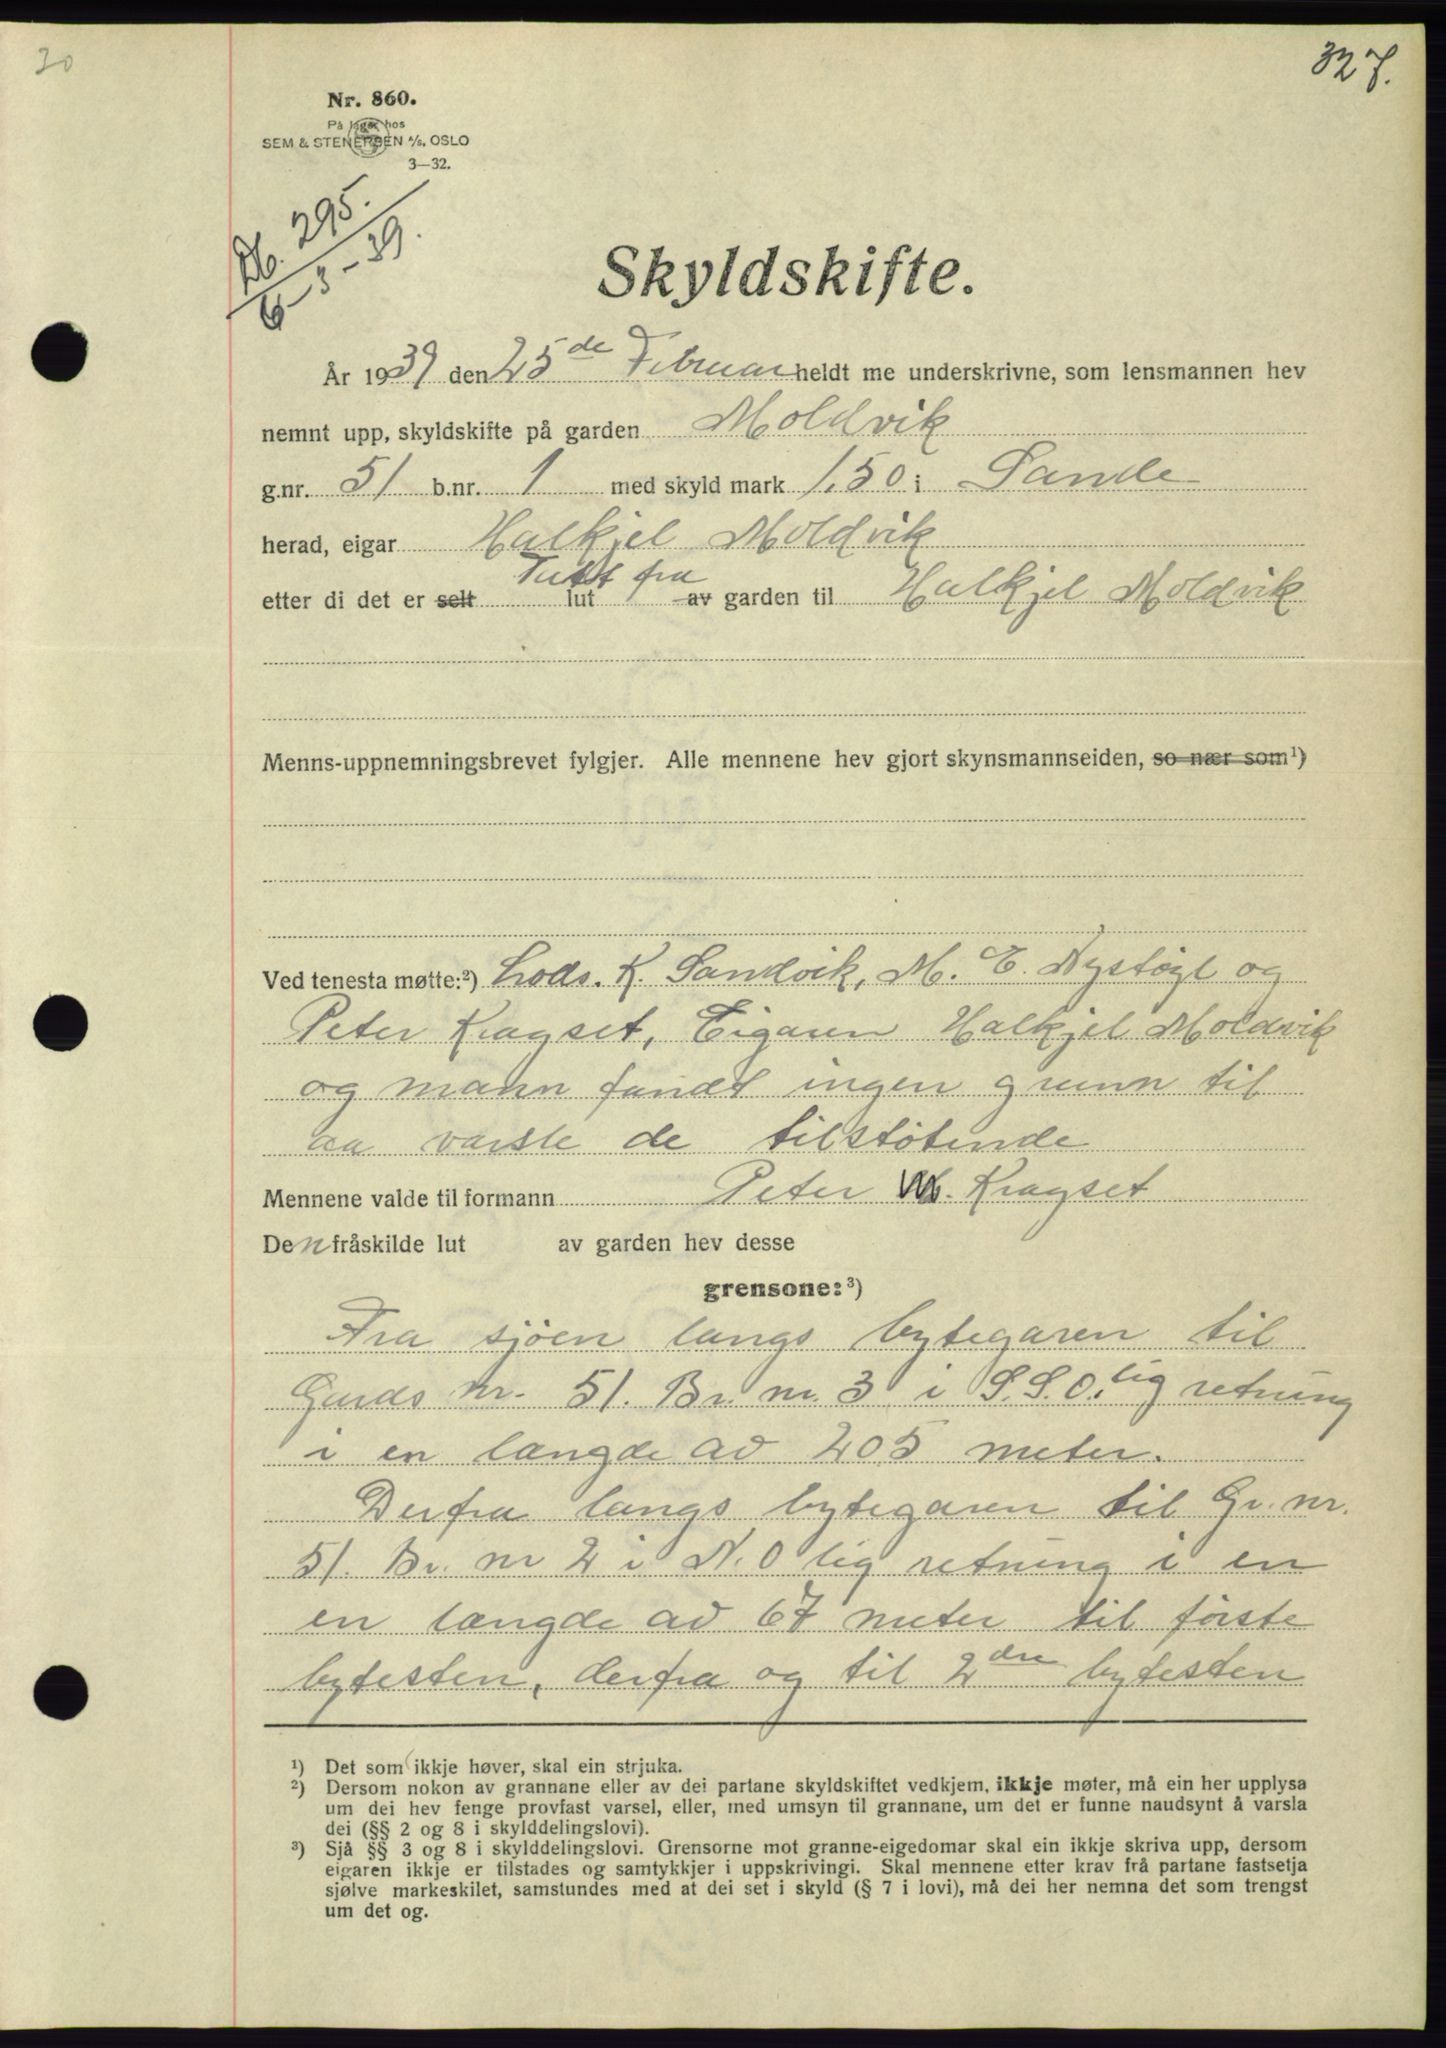 30
327.
Nr. 860.
På lager hos
SEM & STENERSEN A/S, OSLO
3—32.
Db. 295.
6-3-39.
Skyldskifte.
År 1939 den 25de Februar heldt me underskrivne, som lensmannen hev
nemnt upp, skyldskifte på garden Moldvik
g.nr. 51 b.nr. 1 med skyld mark 1,50 i Sande
herad, eigar Halkjel Moldvik
etter di det er selt lut fra av garden til Halkjel Moldvik
Menns-uppnemningsbrevet fylgjer. Alle mennene hev gjort skynsmannseiden, so nær som¹)
Ved tenesta møtte:²) Lods. K. Sandvik, M. E. Nystøyl og
Peter Kragset, Eigaren Halkjel Moldvik
og mann fandt ingen grunn til
aa varsle de tilstøtende
Mennene valde til formann Peter M. Kragset
Den fråskilde lut av garden hev desse
grensone:³)
Fra sjøen langs bytegaren til
Gards nr. 51. Br. nr. 3 i S.S.O.lig retning
i en længde av 205 meter.
Derfra langs bytegaren til Gr. nr.
51. Br. nr 2 i N.O lig retning i en
en længde av 67 meter til første
bytesten, derfra og til 2dre bytesten
¹) Det som ikkje høver, skal ein strjuka.
²) Dersom nokon av grannane eller av dei partane skyldskiftet vedkjem, ikkje møter, må ein her upplysa
um dei hev fenge provfast varsel, eller, med umsyn til grannane, um det er funne naudsynt å varsla
dei (§§ 2 og 8 i skylddelingslovi).
³) Sjå §§ 3 og 8 i skylddelingslovi. Grensorne mot granne-eigedomar skal ein ikkje skriva upp, dersom
eigaren ikkje er tilstades og samtykkjer i uppskrivingi. Skal mennene etter krav frå partane fastsetja
sjølve markeskilet, samstundes med at dei set i skyld (§ 7 i lovi), må dei her nemna det som trengst
um det og.